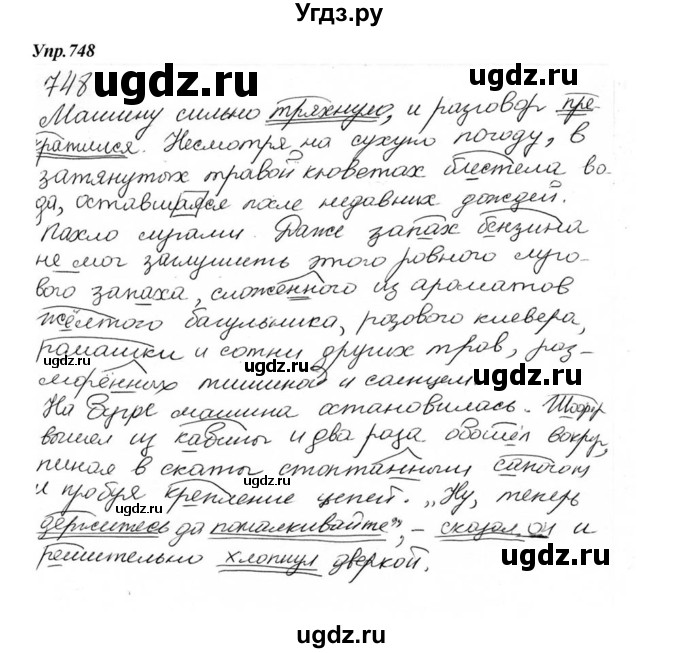 Угдз.ру
Упр.748
748
ugdz.ru ugdz.ru
Машину сильно тряхнуло, и разговор пре-
кратился. Несмотря на сухую погоду, в
затянутых травой кюветах блестела во-
да, оставшаяся после недавних дождей.
Пахло лугами. Даже запах бензина
не мог заглушить этого ровного луго-
вого запаха, сложенного из ароматов
жёлтого багульника, розового клевера,
рамашки и сотни других трав, раз-
ugdz.ru ugdz.ru
морённых тишиной и солнцем
ugdz.ru
На бугре машина остановилась. Шофёр
вышел из кабины и два раза обошёл вокруг,
пиная в скаты стоптанными сапогом
и пробуя крепление цепей. „Ну, теперь
держитесь да помалкивайте", – сказал он и
ugdz.ru ugdz.ru ugdz.ru
решительно хлопнул дверкой.
ugdz.ru